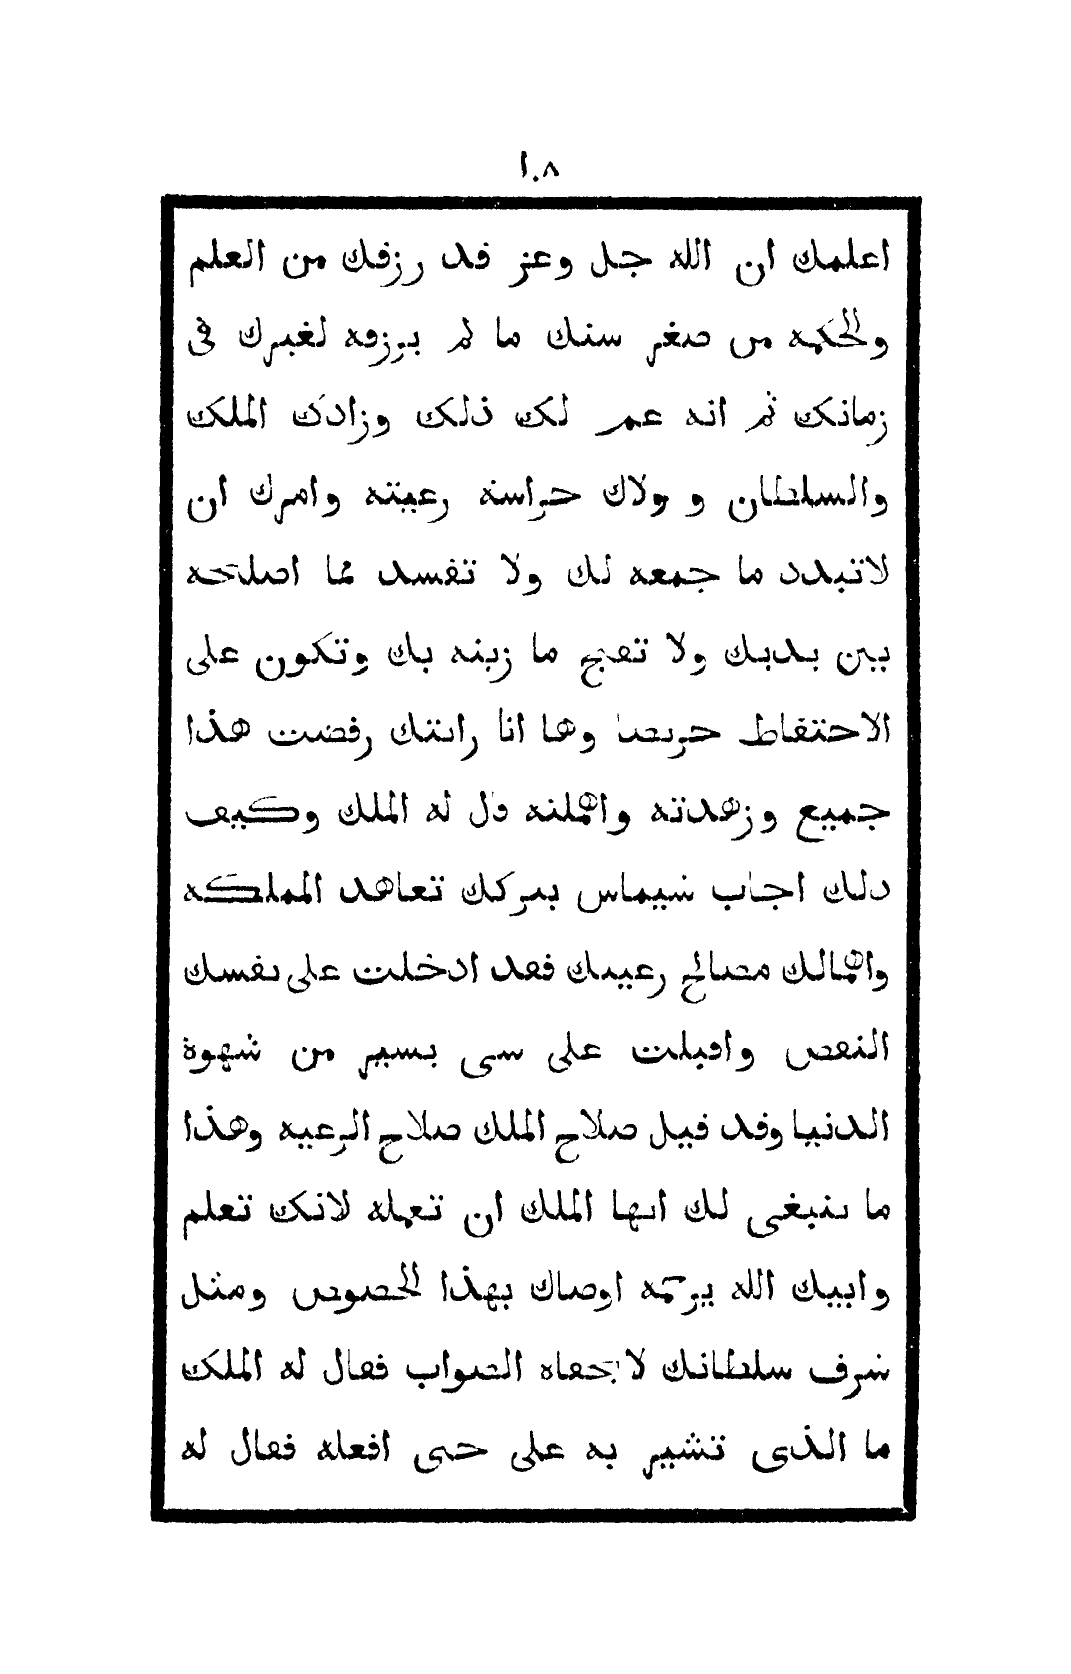 ١٠٨
اعلمك ان الله جل وعز قد رزقك من العلم
والحكمه من صغر سنك ما لم يرزقه لغيرك فى
زمانك ثم انه عمر لك ذلك وزادك الملك
والسلطان و ولاك حراسة رعيته وامرك ان
لاتبدد ما جمعه لك ولا تفسد مما اصلحه
بين يديك ولا تقبح ما زينه بك وتكون على
الاحتفاظ حريصا وها انا رايتك رفضت هذا
جميع وزهدته واهملته قال له الملك وكيف
ذلك اجاب شيماس بتركك تعاهد المملكه
واهمالك مصالح رعيتك فقد ادخلت على نفسك
النقص واقبلت على شى يسير من شهوة
الدنيا وقد قيل صلاح الملك صلاح الرعيه وهذا
ما ينبغى لك ايها الملك ان تعمله لانك تعلم
وابيك الله يرحمه اوصاك بهذا الخصوص ومثل
شرف سلطانك لا الصواب فقال له الملك
ما الذى تشير به على حتى افعله فقال له